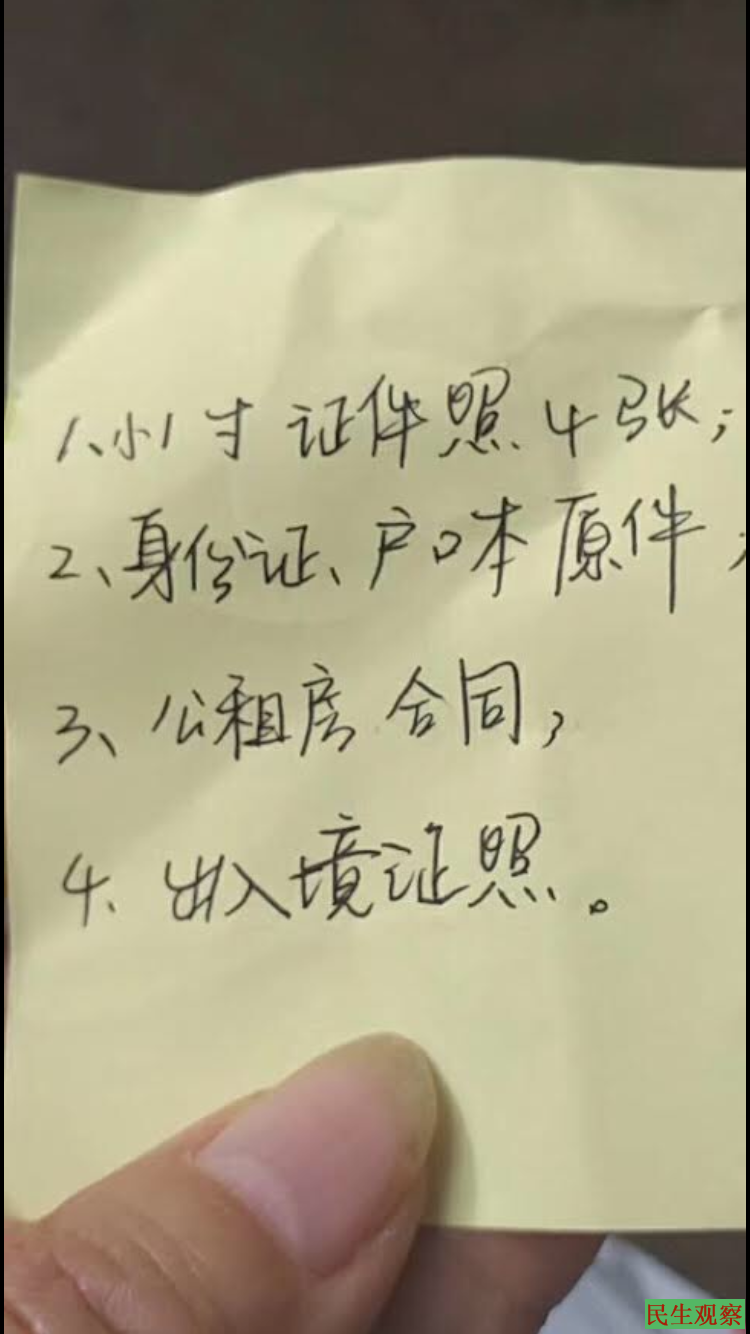 1、小1寸证件照4张；
2、身份证、户口本原件
3、公租房合同，
4、出入境证照。
民生观察